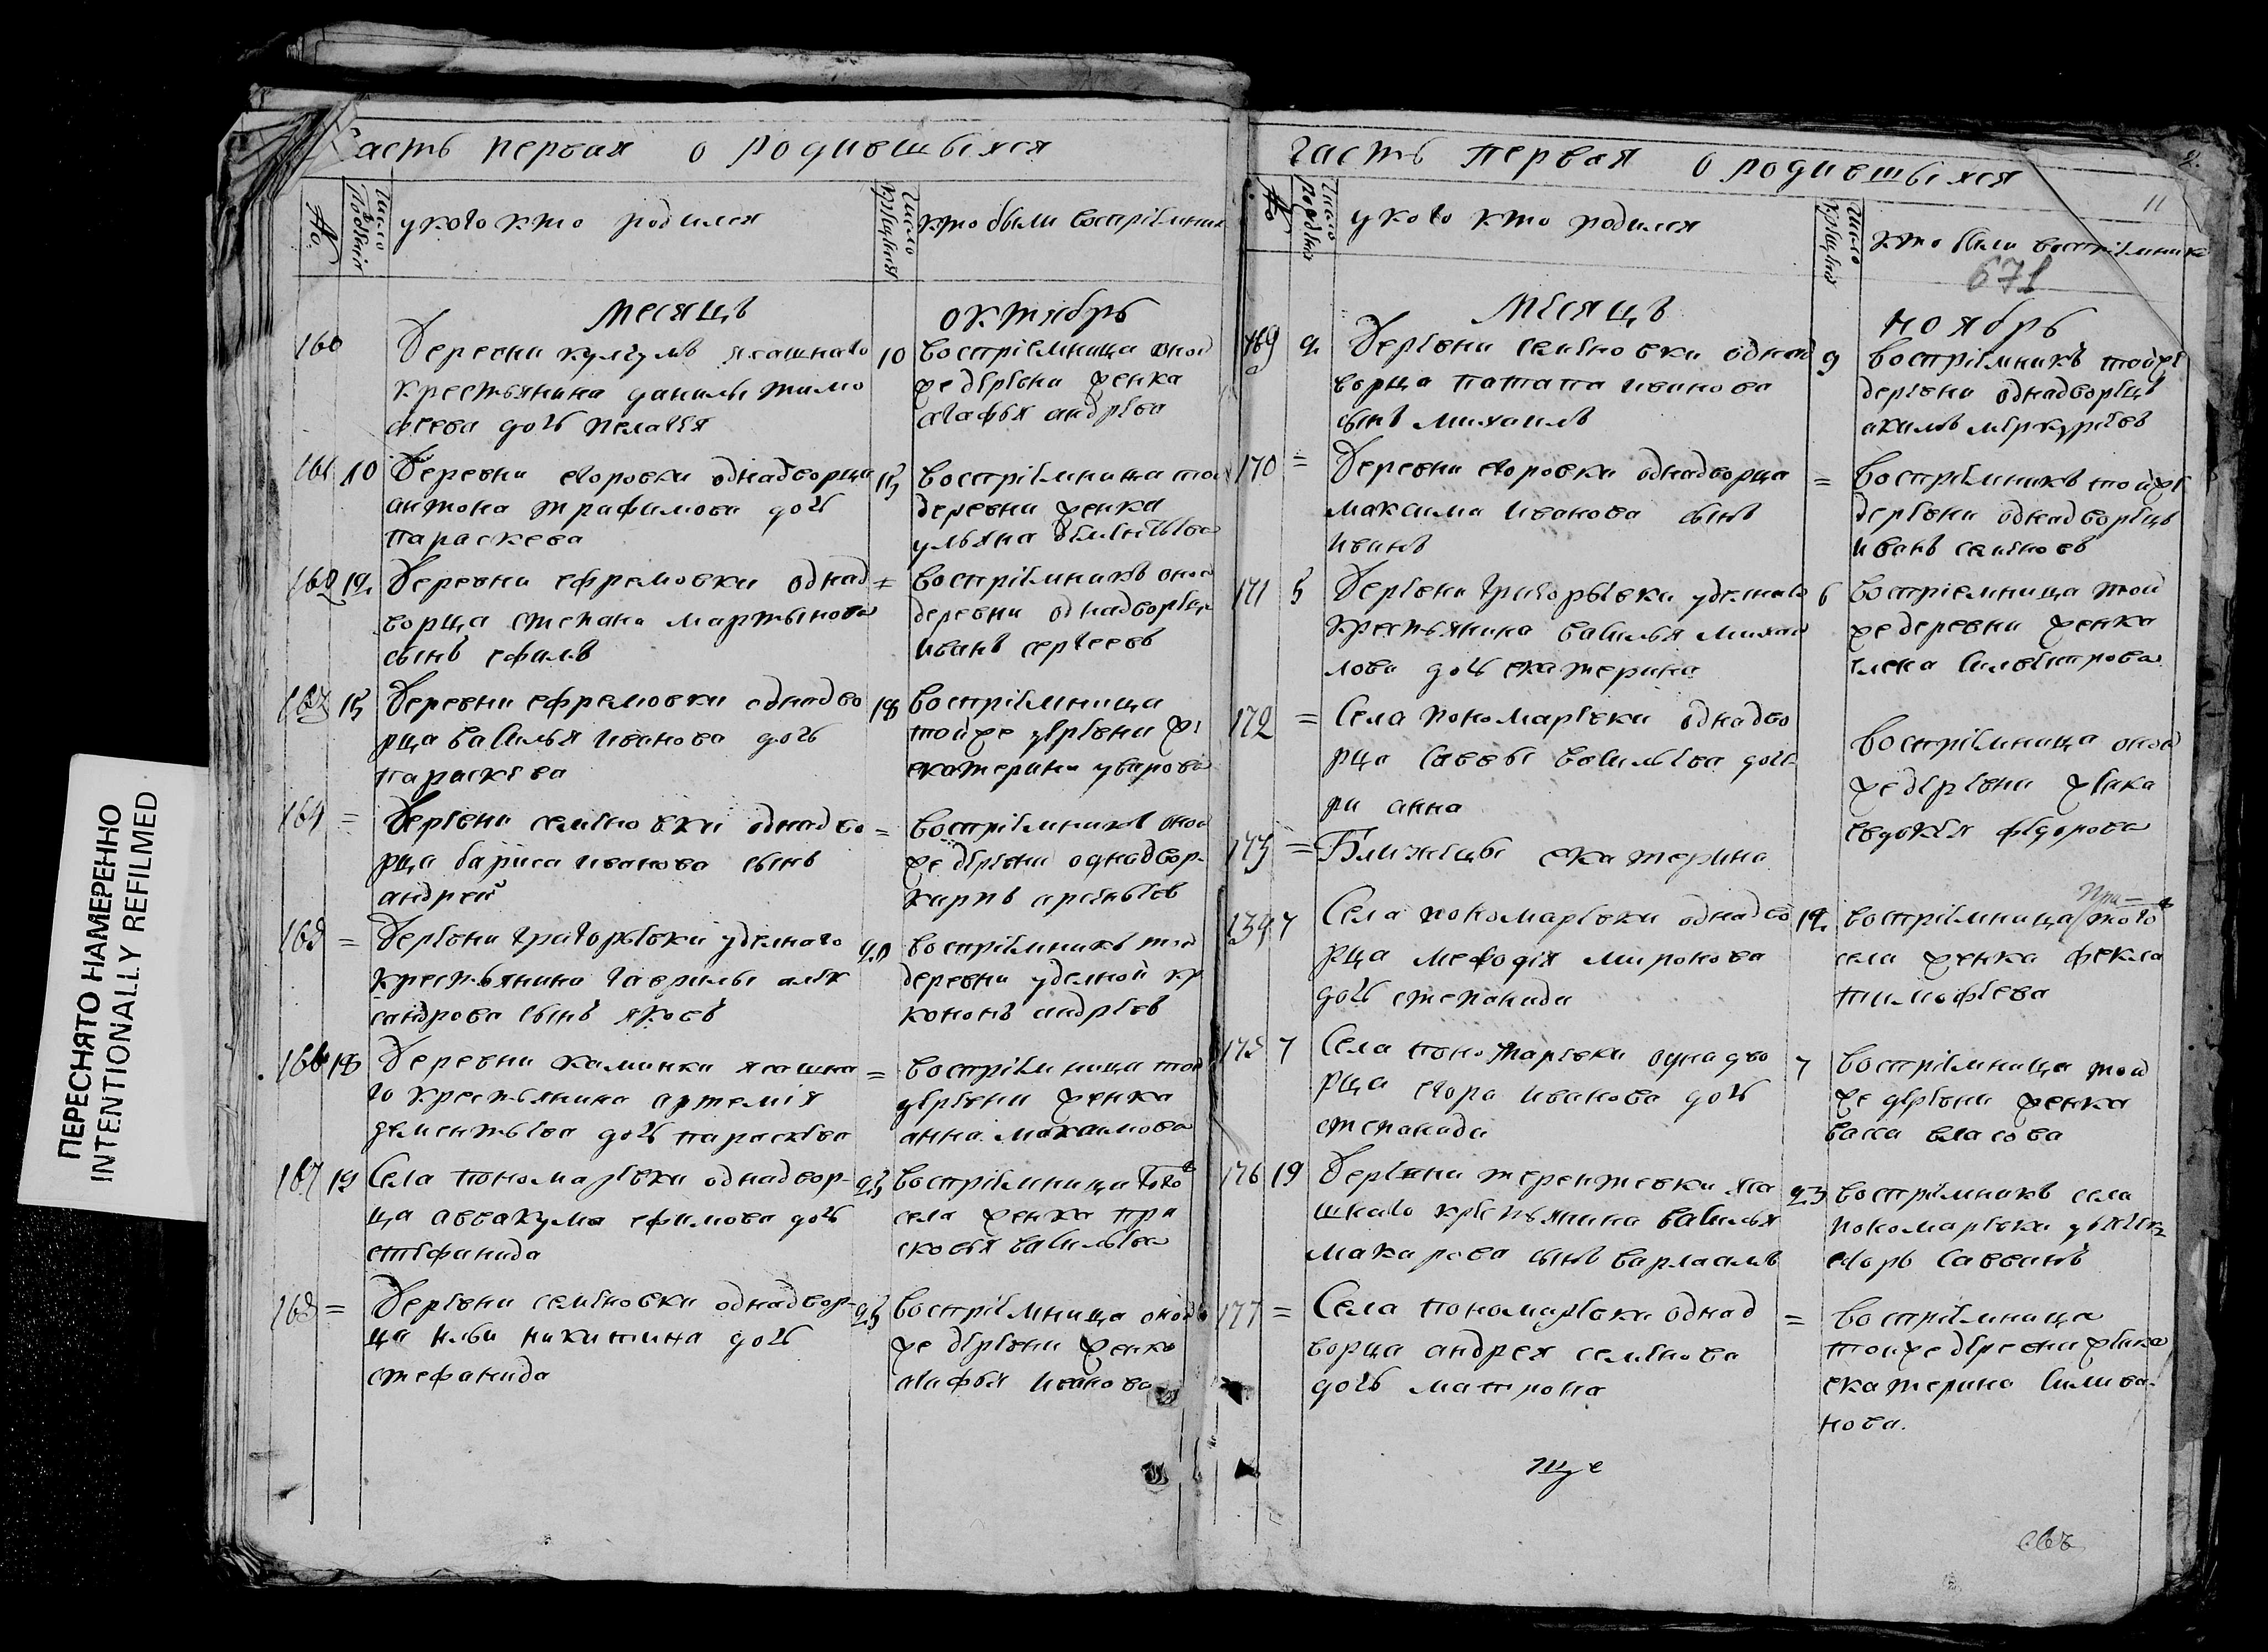 ПЕРЕСНЯТО НАМЕРЕННО
INTENTIONALLY REFILMED
часть первая о родившыхся
№
число рождения
у кого кто родился
число крещения
кто были восприемники
месяцъ октябрь
160
деревни кулгумъ ясашнаго
крестьянина данилы тимо
феева дочь пелагея
10
восприемница оной
же деревни женка
агафья андреева
161 10
деревни егоровки однадворца
антона трафимова дочь
параскева
15
восприемница той
деревни женка
ульяна
162 12
деревни ефремовки однад
ворца степана мартынова
сынъ
=
восприемникъ оной
деревни однадворецъ
иванъ сергеевъ
163 15
деревни ефремовки однадво
рца василья иванова дочь
параскева
18
восприемница
тойже деревни же
екатерина уварова
164 =
деревни семеновки однадво
рца бариса иванова сынъ
андрей
=
восприемникъ оной
же деревни однадвор
карпъ арсеньевъ
165 =
деревни григорьевки уделнаго
крестьянина гаврилы алек
сандрова сынъ яковъ
20
восприемникъ той
деревни уделной кр
кононъ андреев
166 18
деревни каминки ясашна
го крестьянина артемія
дементьева дочь параскева
=
восприемница той
деревни женка
анна максимова
167 19
села пономаревки однадвор
ца аввакума ефимова дочь
стефанида
25
восприемница того
села женка пра
сковья васильева
168 =
деревни семеновки однадвор
ца ильи никитина дочь
стефанида
25
восприемница оной
же деревни женка
агафья иванова
часть первая о родившыхся
11
№
число рождения
у кого кто родился
число крещения
кто были восприемники
671
месяцъ ноябрь
169 2
деревни семеновки однад
ворца патапа иванова
сынъ михаилъ
9
восприемникъ тойже
деревни однадворецъ
акимъ меркурьевъ
170 =
деревни егоровки однадворца
максима иванова сынъ
иванъ
=
восприемникъ тойже
деревни однадворецъ
иванъ семеновъ
171 5
деревни григорьевки уделнаго
крестьянина василья михаи
лова дочь екатерина
6
восприемница той
же деревни женка
елена
172 =
села пономаревки однадво
рца саввы васильева доче
ри анна
восприемница оной
же деревни женка
евдокея федорова
173 =
близнецы екатерина
7
села пономаревки однадво
рца мефодія миронова
дочь степанида
12
при
восприемница того
села женка фекла
тимофеева
175 7
села пономаревки однадво
рца егора иванова дочь
степанида
7
восприемница той
же деревни женка
васса власова
176 19
деревни терентевки яса
шнаго крестьянина василья
макарова сынъ варлаамъ
23
восприемникъ села
пономаревки
егоръ саввинъ
177 =
села пономаревки однад
ворца андрея семенова
дочь матрона
=
восприемница
тойже деревни женка
екатерина силива
нова.